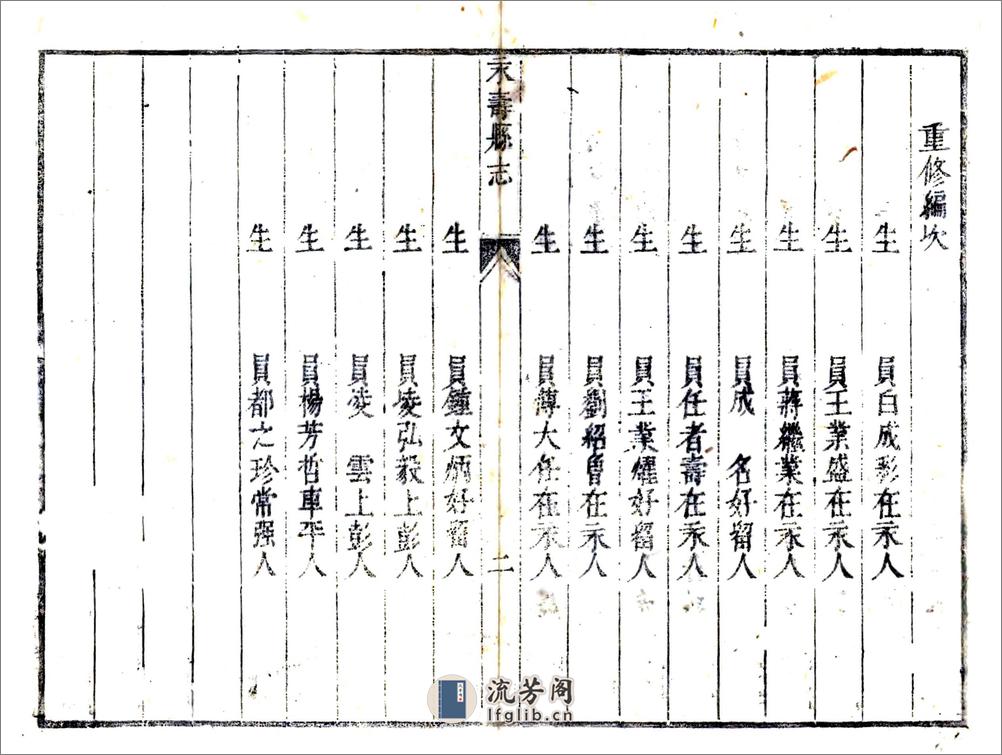 重修編次
生 員白成彩在永人
生 員王業盛在永人
生 員蔣繼業在永人
生 員成 名好留人
生 員任者壽在永人
生 員王業燿好留人
生 員劉紹曾在永人
生 員傅大任在永人
永壽縣志 二
生 員鍾文炳好留人
生 員凌弘毅上彭人
生 員凌 雲上彭人
生 員楊芳哲車平人
生 員都之珍常强人
流芳阁
lfglib.cn